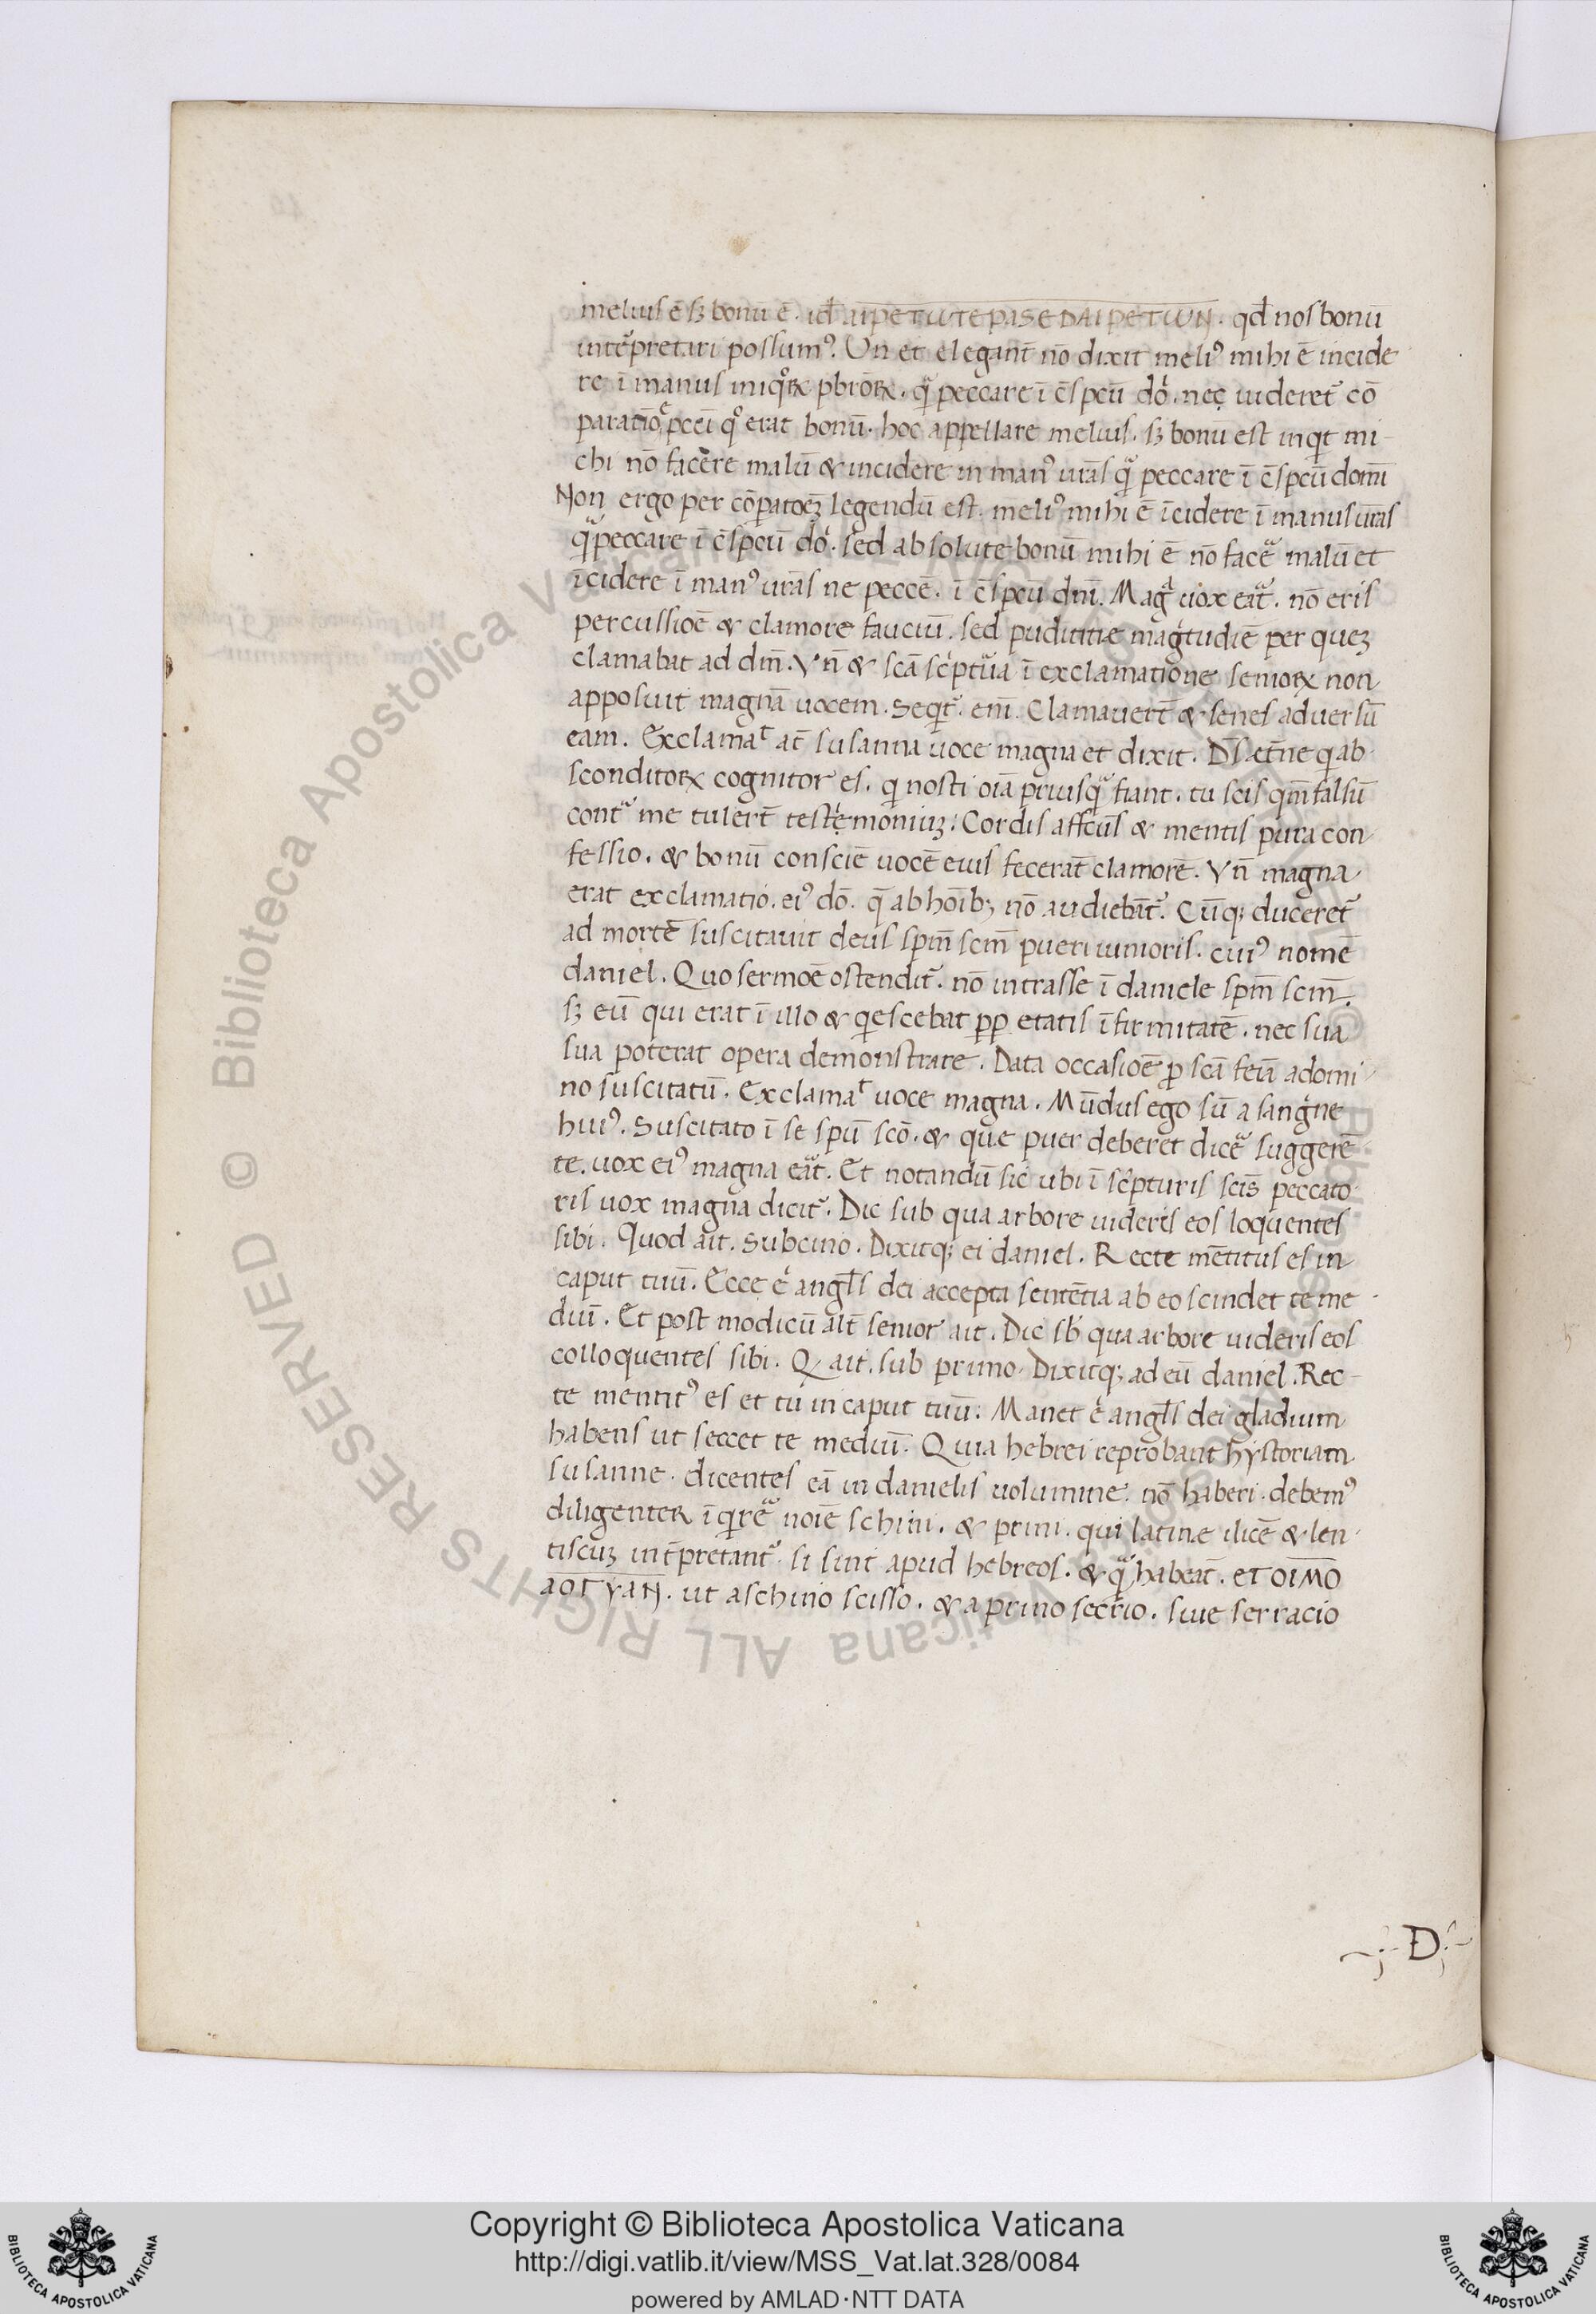 melius ē sꝫ bonū ē. id ē̄ qd nos bonū
intẽpretari possumꝰ. Vn̄ et elegant̄ nō dixit meliꝰ mihi ē incide
re ī manus iniqͦꝝ pbrōꝝ. qͣ̄ peccare ī ↄ̄spcū dō. nec uideret᷑ cō
paratiōe pcci̅ qͦ erat bonū. hoc appellare melius. sꝫ bonū est inqͥt mi-
chi nō facere malū & incidere in manꝰ ur̄as qͣ̄ peccare ī c̄spcū domī
Non ergo per cōparatoēꝫ legendū est. meliꝰ mihi ē īcidere ī manus ur̄as
qͣ̄ peccare ī c̄spcū dō. sed absolute bonū mihi ē nō facē malū et
īcidere ī manꝰ ur̄as ne peccē. ī c̄spcū dn̄i. Magͣ uox eāt. nō eris
percussioē & clamore fauciū. sed pudititie magͥtudiē per quēꝫ
clamabat ad dm̄. Vn̄ & scā scͥptūa ī exclamatione senioꝝ non
apposuit magnā uocem. Seqͥt᷑. em̄. Clamauert̄ & senes aduersū
eam. Exclamaͭ at̄ susanna uoce magna et dixit. D̄s etn̄e qͥ ab
sconditoꝝ cognitor es. qͥ nosti oīa priusqͣ̄ fiant. tu scis qm̄ falsū
contͣ me tulert̄ testͥmoniuꝫ. Cordis affcūs & mentis pura con
fessio. & bonū consciē uocē eius fecerat̄ clamorē. Vn̄ magna
erat exclamatio. eiꝰ dō. q̄ ab hoībꝫ nō audiebāt᷑. Cūqꝫ duceret᷑
ad mortē suscitauit deus spm̄ scm̄ pueri iunioris. cuiꝰ nomē
daniel. Quo sermoē ostendit᷑. nō intrasse ī daniele spm̄ scm̄.
sꝫ eū qui erat ī illo & qͥescebat ꝓp̱ etatis īfirmitatē. nec sua
sua poterat opera demonstrare. Data occasioē p̱ scā feīa a domi
no suscitatū. Exclamaͭ uoce magna. Mūdus ego sū a sangͥne
huiꝰ. Suscitato ī se spū scō. & que puer deberet dicē suggerē
te. uox eiꝰ magna eāt. Et notandū sic ubi ī scͥpturis scīs peccato-
ris uox magna dicit᷑. Dic sub qua arbore uideris eos loquentes
sibi. Quod ait. Subcino. Dixitqꝫ ei daniel. Recte mētitus es in
caput tuū. Ecce ē angl̄s dei accepta sentētia ab eo scindet te me-
diū. Et post modicū alt̄ senior ait. Dic sb̄ qua arbore uideris eos
colloquentes sibi. Q ait. sub primo. Dixitqꝫ ad eū daniel. Rec-
te mentitꝰ es et tu in caput tuū. Manet ē angl̄s dei gladium
habens ut seccet te mediū. Quia hebrei reprobant hystoriam
susanne. dicentes eā in danielis uolumine. nō haberi. debemꝰ
diligenter īqͥrē noīe schini. & prini. qui latine ilicē & len-
tiscuꝫ int̄pretant᷑. si sint apud hebreos. & qͣ̄ habeāt. ETOIMO
AOΓYAN. ut a schino scisso. & a primo sect̄io. siue serracio
D
Copyright © Biblioteca Apostolica Vaticana
http://digi.vatlib.it/view/MSS_Vat.lat.328/0084
powered by AMLAD·NTT DATA